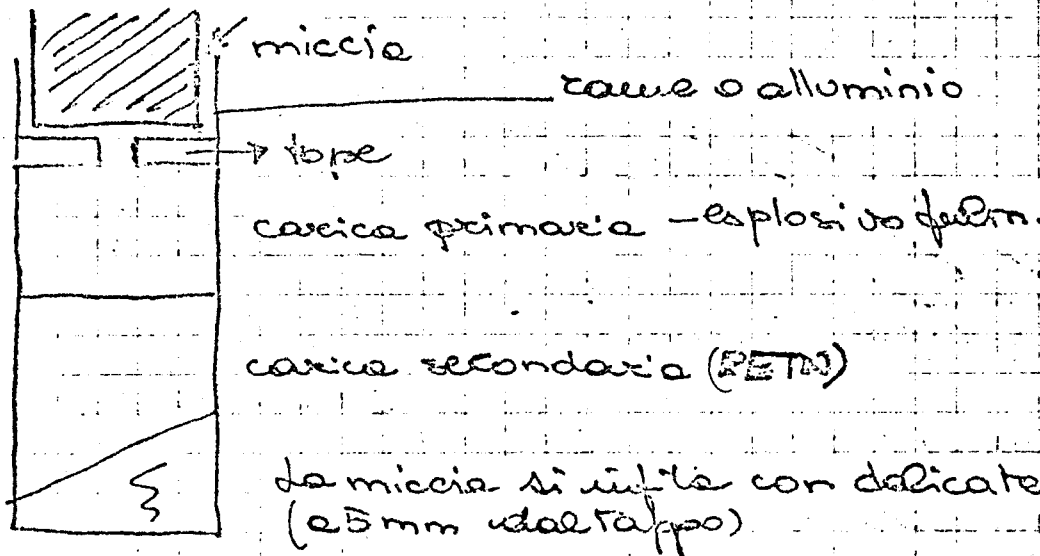 miccia
rame o alluminio
carica primaria - esplosivo fulm.
carica secondaria (PETN)
La miccia si infila con delicate
(a 5 mm dal tappo)